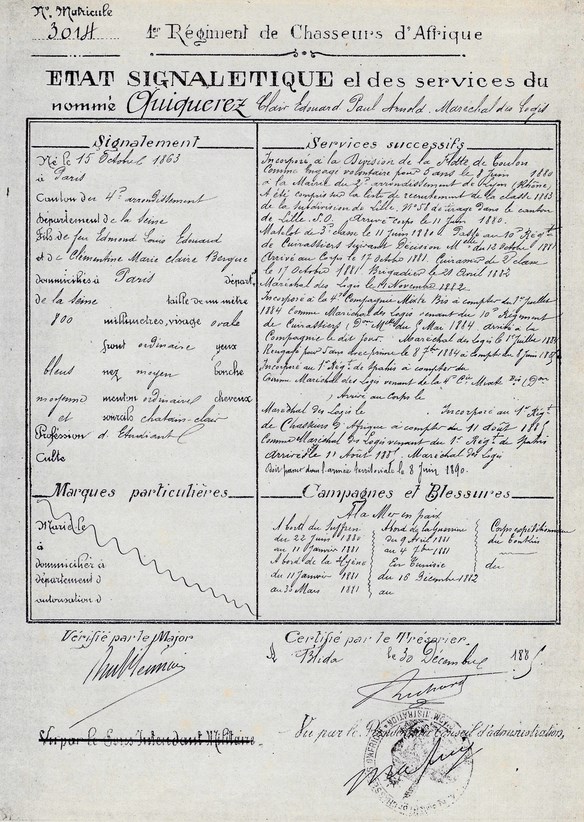 No. Matricule
3014
1er Régiment de Chasseurs d'Afrique
ETAT SIGNALETIQUE et des services du
nommé Quiquerez Clair Edouard Paul Arnold. Maréchal des Logis
Signalement
Né le 15 Octobre 1863
à Paris
Canton du 4e arrondissement
département de la Seine
Fils de feu Edmond Louis Edouard
et de Clémentine Marie Claire Bergue
domiciliés à Paris départt
de la Seine taille du mètre
800 millimètres, visage ovale
front ordinaire yeux
bleus nez moyen bouche
moyenne menton ordinaire cheveux
et sourcils chatain-clair
Profession d'Etudiant
Culte
Marques particulières
Marié le
à
domiciliés à
département d
autorisation d
Services successifs
Incorporé à la Division de la Flotte de Toulon
Comme engagé volontaire pour 5 ans le 8 Juin 1880
à la Mairie du 2e arrondissement de Lyon (Rhône)
A été compris sur la liste de recrutement de la classe 1883
de la Subdivision de Lille No 58 de tirage Dans le canton
de Lille S.O. Arrivé au corps le 11 Juin 1880.
Matelot de 3e classe le 11 Juin 1880 Passé au 10e Régt
de Cuirassiers suivant Décision Mlle du 12 Octobre 1881
Arrivé au Corps le 17 Octobre 1881. Cuirassier de 2e classe
le 17 Octobre 1881 Brigadier le 20 Avril 1882
Maréchal des Logis le 14 Novembre 1882.
Incorporé à la 4e Compagnie Mixte Bis à compter du 1er Juillet
1884 comme Maréchal des Logis venant du 10e Régiment
de Cuirassiers (Don Mlle du Mai 1884, arrivé à la
Compagnie le dit jour. Maréchal des Logis le 1er Juillet 1884
Rengagé pour 5 ans 1884 à compter du 8 Juin 1885
Incorporé au 1er Régt de Spahis à compter du
Comme Maréchal des Logis venant de la 4e Cie Mixte Bis (Don
) Arrivé au Corps le
Maréchal des Logis le . Incorporé au 1er Régt
de Chasseurs d'Afrique à compter du 11 Août 1885
Comme Maréchal des Logis venant du 1er Régt de Spahis
arrivé le 11 Août 1885. Maréchal des Logis
Doit passer dans l'armée territoriale le 8 Juin 1890.
Campagnes et Blessures
A la Mer en paix
A bord du Suffren
du 22 Juin 1880
au 11 Janvier 1881
A bord de la Hyène
du 11 Janvier 1881
au 30 Mars 1881
A bord de la Guerrière
du 9 Avril 1881
au 4 7bre 1881
En Tunisie
du 16 Décembre 1882
au
Corps expéditionnaire
du Tonkin
du
Vérifié par le Major
Certifié par le Trésorier
A Blida le 30 Décembre 1885
Vu par le Sous Intendant Militaire.
Vu par le Président du Conseil d'administration,